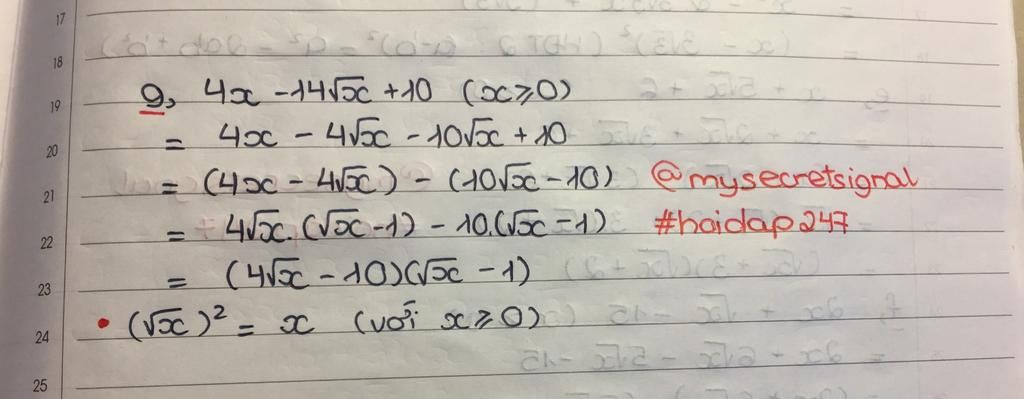 17
18
19 g, 4x - 14√x + 10 (x ≥ 0)
20 = 4x - 4√x - 10√x + 10
21 = (4x - 4√x) - (10√x - 10) @mysecretsignal
22 = 4√x.(√x - 1) - 10.(√x - 1) #hoidap247
23 = (4√x - 10)(√x - 1)
24 • (√x)² = x (với x ≥ 0)
25